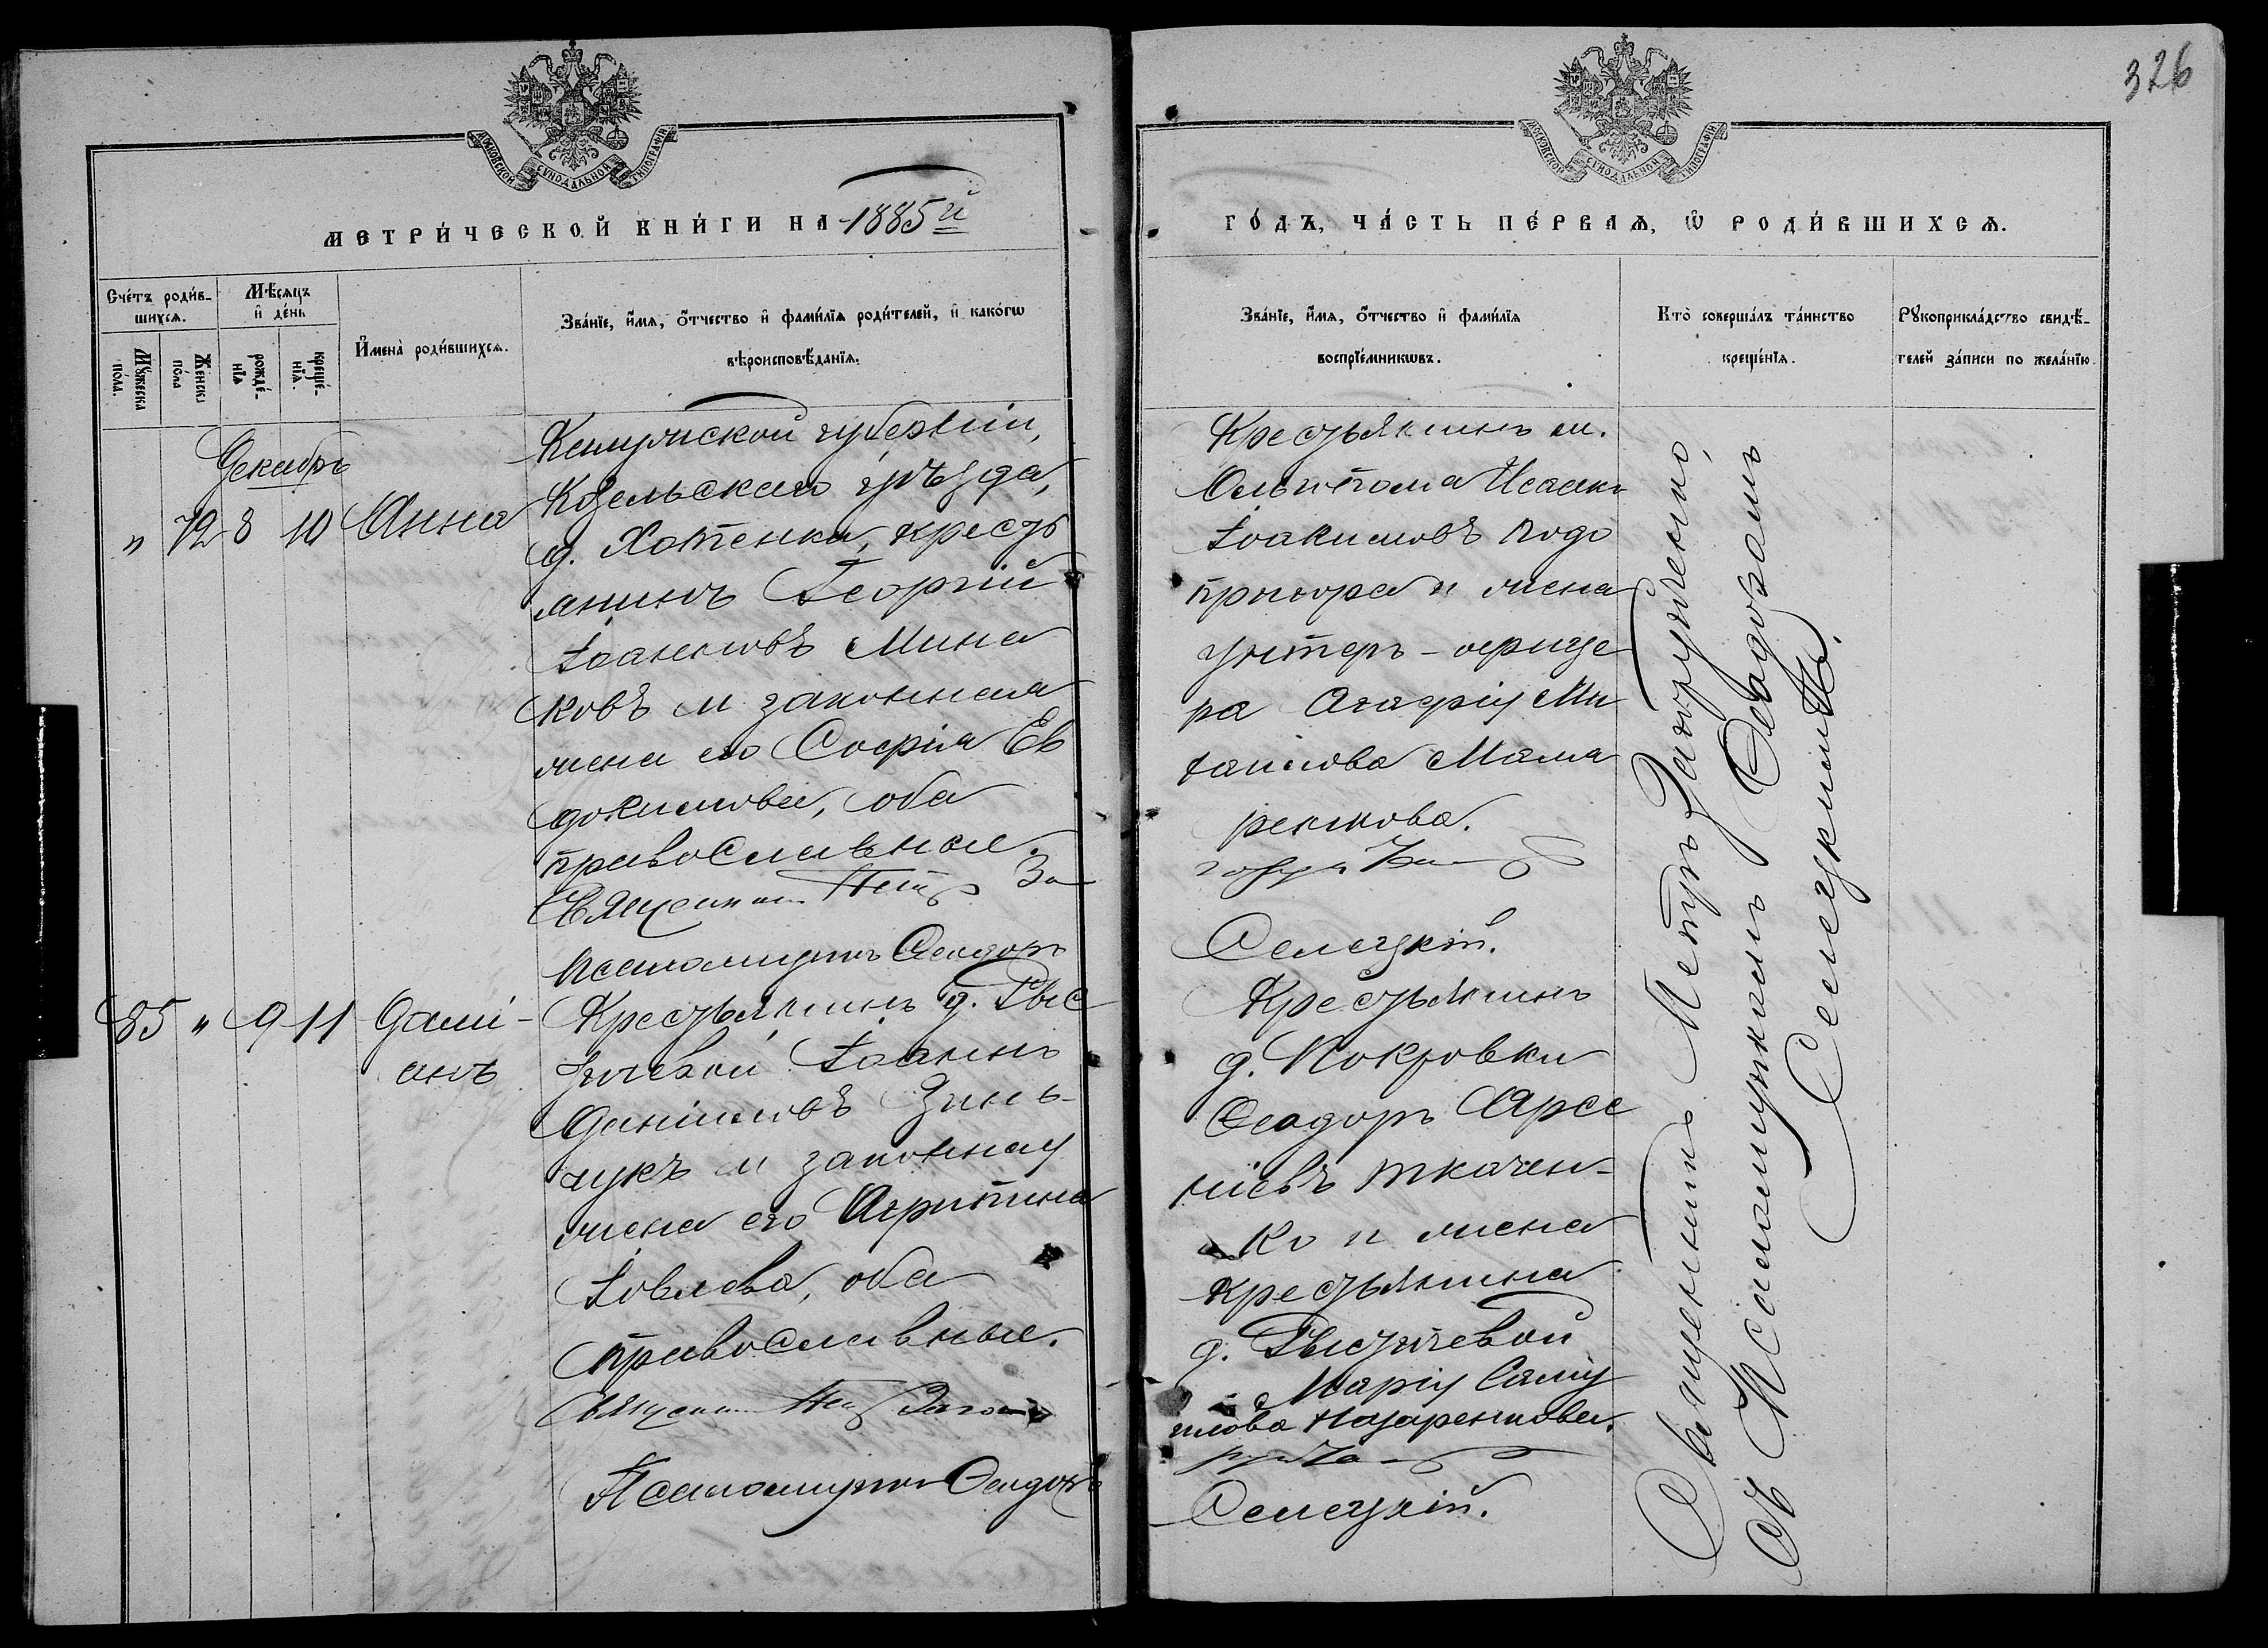 326
МОСКОВСКОЙ СУНОДАЛЬНОЙ ТИПОГРАФІИ
МЕТРИ́ЧЕСКОЙ КНИ́ГИ НА 1885й
Сче́тъ роди́в-
шихсѧ.
Мѣ́сѧцъ
и де́нь
Мꙋ́жеска
по́ла.
Же́нска
по́ла
рожде́-
нїѧ
креще́-
нїѧ.
И҆мена̀ роди́вшихсѧ.
Зва́нїе, и҆́мѧ, ѻ҆́тчество и҆ фами́лїѧ роди́телей, и҆ како́гѡ
вѣроисповѣ́данїѧ.
Декабрь
" 72 8 10 Анна
Калужской губерніи,
Козельскаго уѣзда,
д. Хотенки, кресть
янинъ Георгій
Іоанновъ Мина
ковъ и законная
жена его Софія Ев
докимова, оба
православные.
Священникъ Петръ За
Псаломщикъ Ѳеодоръ
85 " 9 11 Дамі-
анъ
Крестьянинъ д.
Іоаннъ
Даніиловъ Зинь-
чукъ и законная
жена его Агрипина
Іовлева, оба
православные.
Священникъ Петръ
Псаломщикъ Ѳеодоръ
МОСКОВСКОЙ СУНОДАЛЬНОЙ ТИПОГРАФІИ
ГО́ДЪ, ЧА́СТЬ ПЕ́РВАѦ, Ѡ҆ РОДИ́ВШИХСѦ.
Зва́нїе, и҆́мѧ, ѻ҆́тчество и҆ фами́лїѧ
воспрїе́мникѡвъ.
Кто̀ соверша́лъ та́инство
креще́нїѧ.
Рꙋкоприкла́дство свидѣ́-
телей за́писи по жела́нїю.
Крестьянинъ
Исаакъ
Іоакимовъ Подо
пригора и жена
унтеръ-офице
ра Агафія
Мама
ренкова.
Селецкій.
Крестьянинъ
д. Покровки
Ѳеодоръ Арсе
ніевъ Ткачен-
ко и жена
крестьянина
д.
Марія Саму
илова Назаренкова.
Селецкій.
Священникъ Петръ Загорученко,
съ Псаломщикомъ Ѳеодоромъ
Селецкимъ.